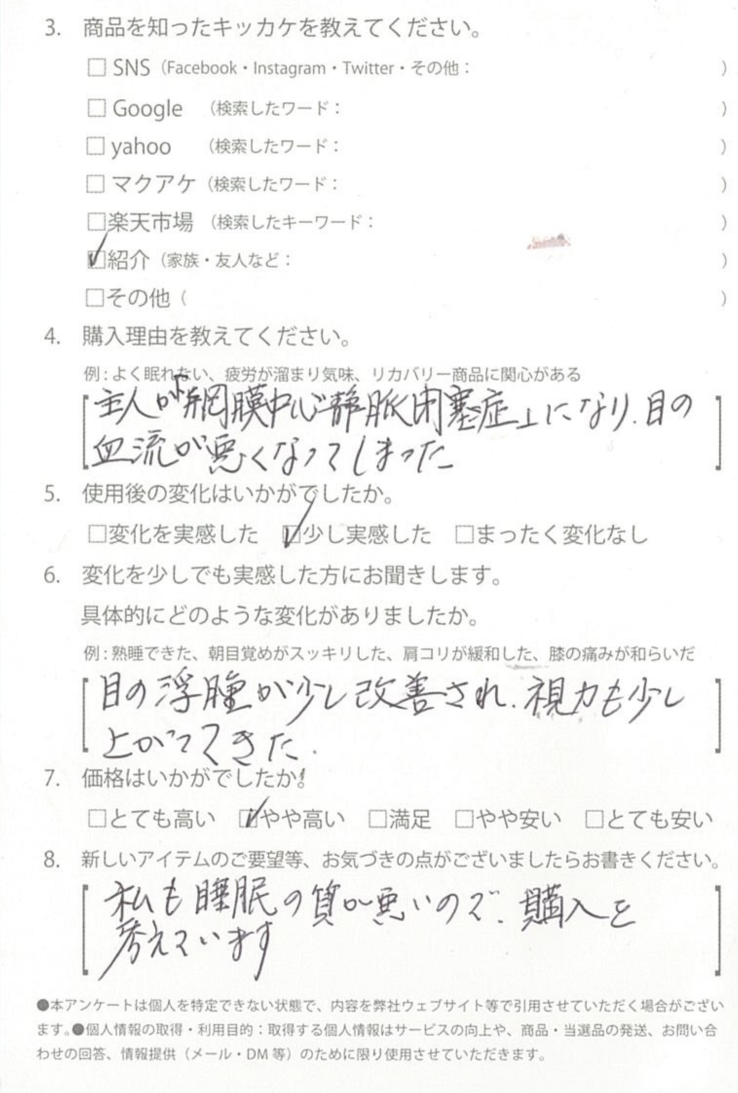 3. 商品を知ったキッカケを教えてください。
□ SNS（Facebook・Instagram・Twitter・その他： ）
□ Google （検索したワード： ）
□ yahoo （検索したワード： ）
□ マクアケ（検索したワード： ）
□楽天市場 （検索したキーワード： ）
☑紹介（家族・友人など： ）
□その他（ ）
4. 購入理由を教えてください。
例：よく眠れない、疲労が溜まり気味、リカバリー商品に関心がある
主人が「網膜中心静脈閉塞症」になり、目の
血流が悪くなってしまった
5. 使用後の変化はいかがでしたか。
□変化を実感した ☑少し実感した □まったく変化なし
6. 変化を少しでも実感した方にお聞きします。
具体的にどのような変化がありましたか。
例：熟睡できた、朝目覚めがスッキリした、肩コリが緩和した、膝の痛みが和らいだ
目の浮腫が少し改善され、視力も少し
上がってきた.
7. 価格はいかがでしたか。
□とても高い ☑やや高い □満足 □やや安い □とても安い
8. 新しいアイテムのご要望等、お気づきの点がございましたらお書きください。
私も睡眠の質が悪いので、購入を
考えています
●本アンケートは個人を特定できない状態で、内容を弊社ウェブサイト等で引用させていただく場合がござい
ます。●個人情報の取得・利用目的：取得する個人情報はサービスの向上や、商品・当選品の発送、お問い合
わせの回答、情報提供（メール・DM 等）のために限り使用させていただきます。